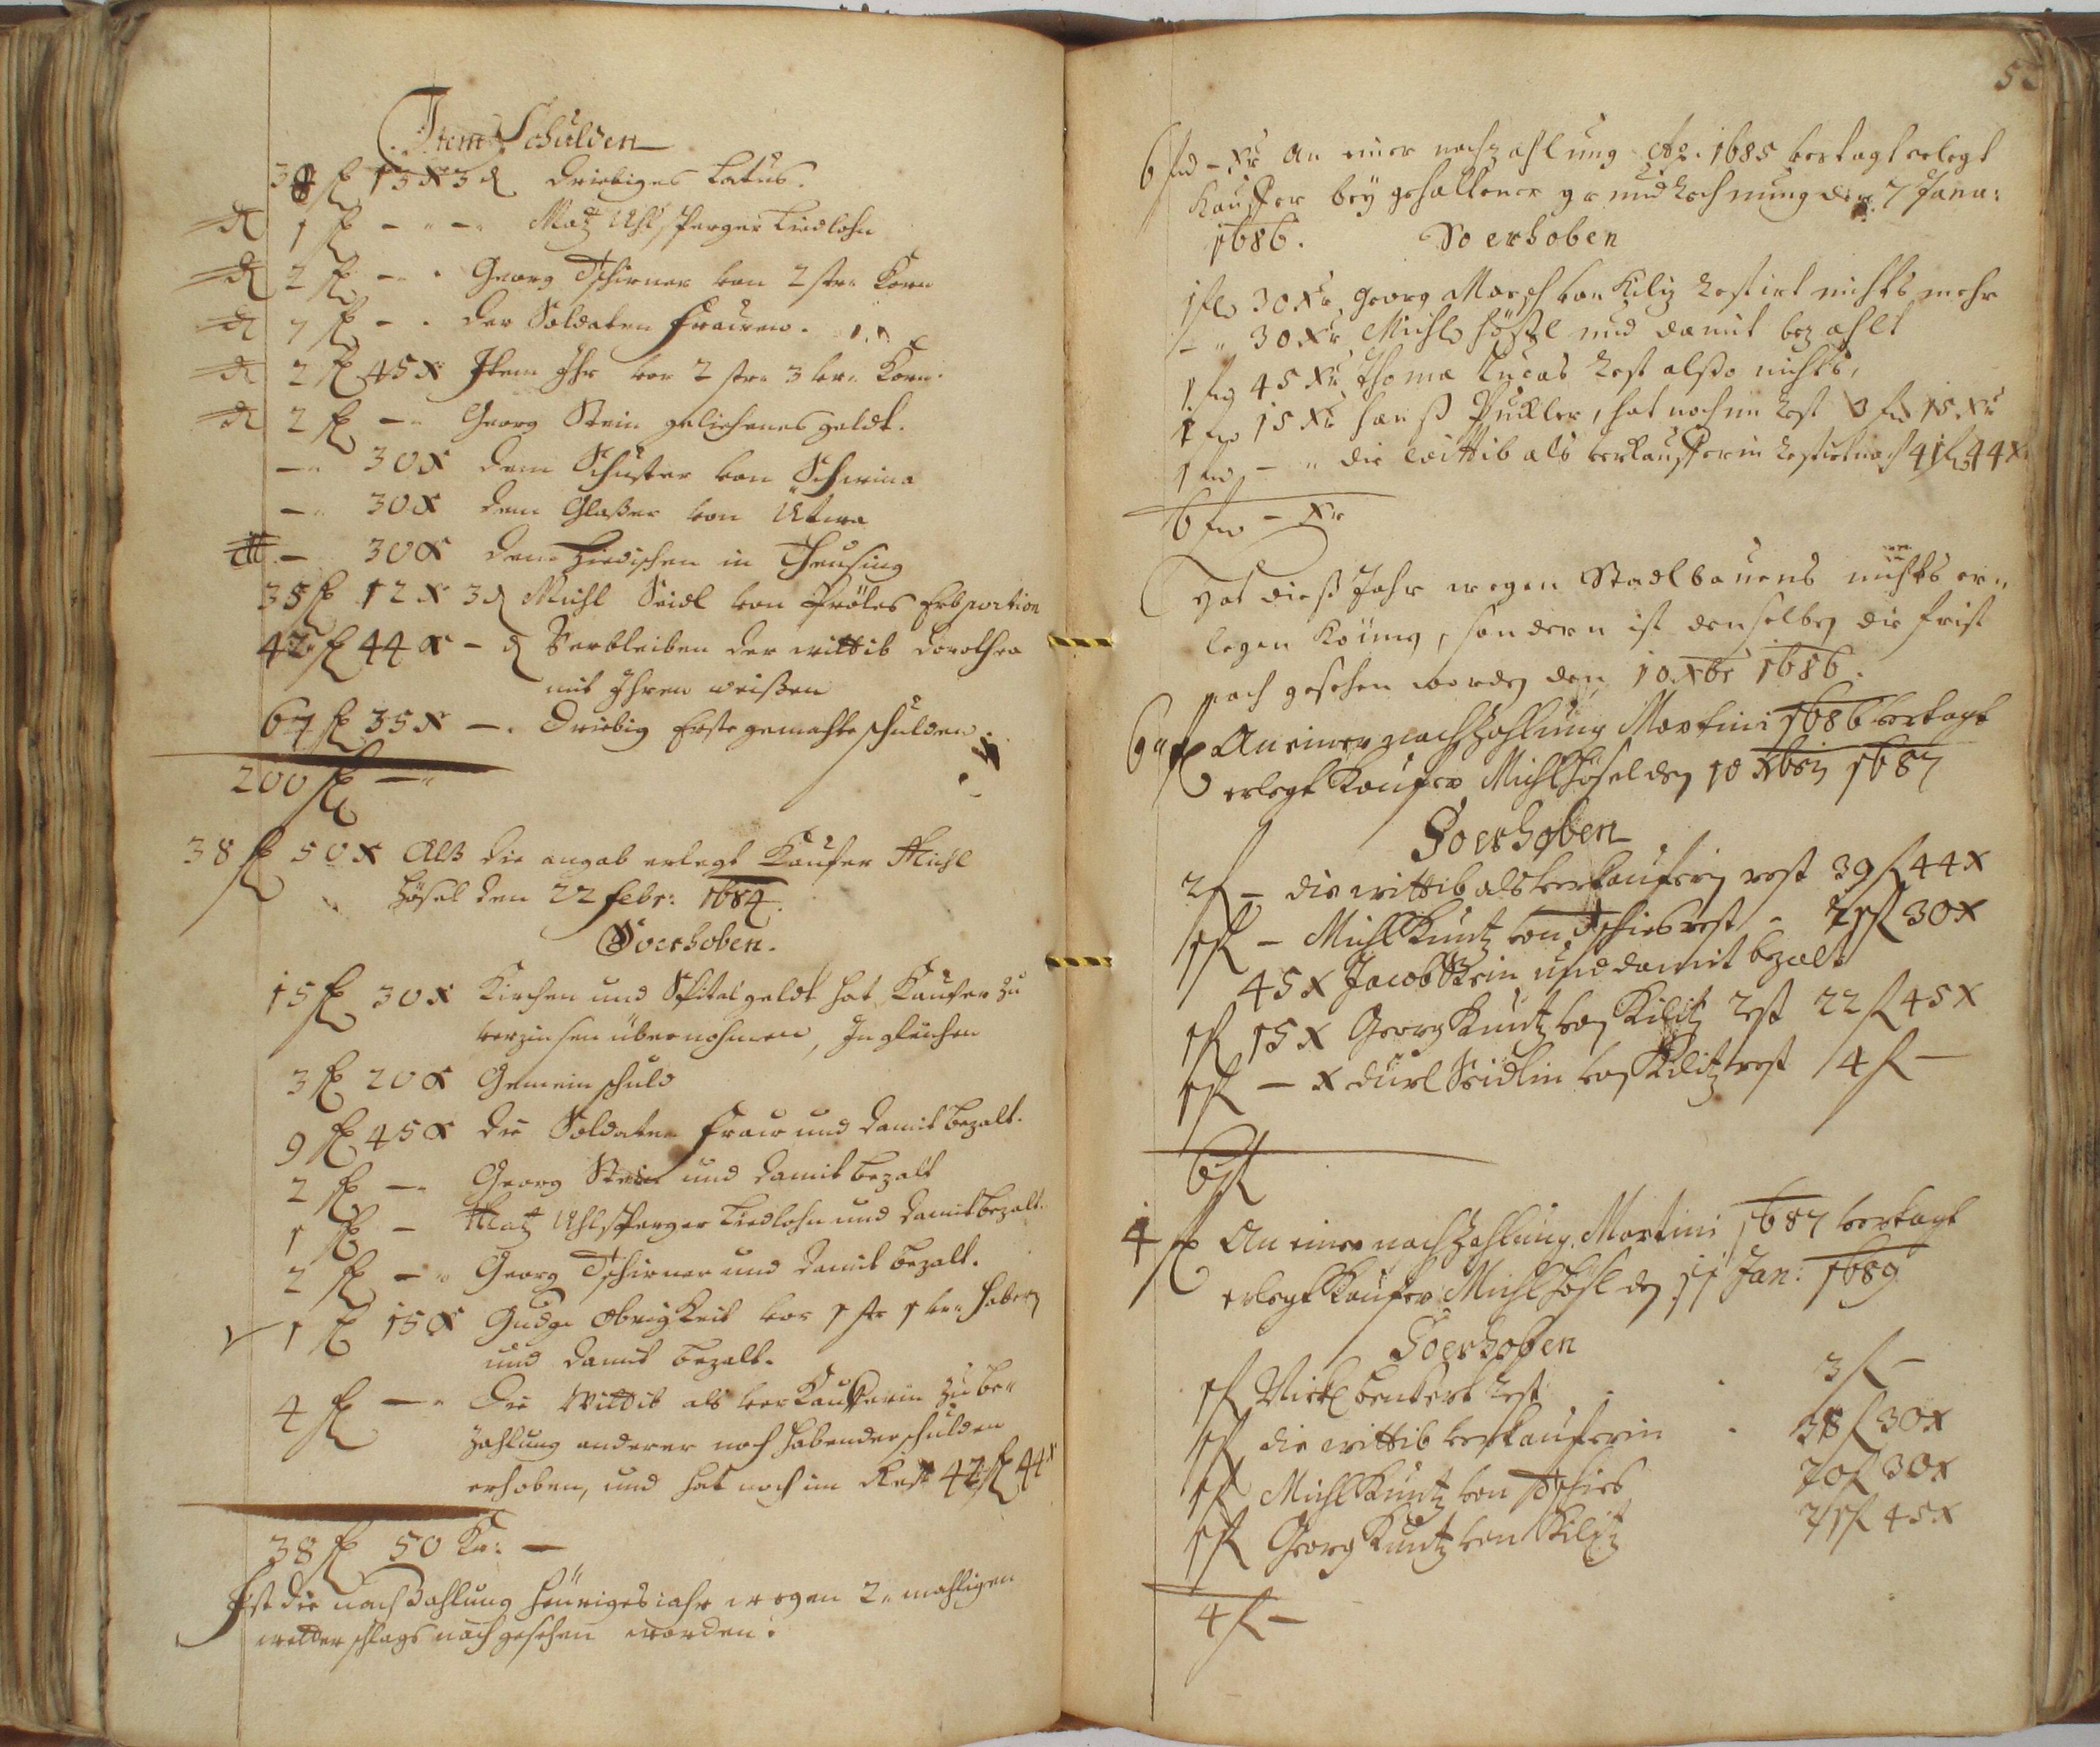 Item Schulden
38 fl 15 x 3 d driebiges Latus.
1 fl - - Matz Uhlsperger Liedlohn
2 fl - - Georg Tschirner von 2 str. Korn
7 fl - - der Soldaten Frauen.
2 fl 45 x Item Ihr vor 2 str. 3 vr. Korn.
2 fl - Georg Stein geliehenes geldt.
- 30 x dem Schuster von
- 30 x dem Glaßer von Utwa
- 30 x dem in Theusing
35 fl 12 x 3 d Michl Seidl von Pröles Erbportion
42 fl 44 x - d Verbleiben der wittib Dorothea
mit Ihren weißen
67 fl 35 x - driebig Erste gemachte schulden.
200 fl -
38 fl 50 x Alß die angab erlegt Kaufer Michl
Hösel den 22 Febr: 1684.
So erhoben.
15 fl 30 x Kirchen und Spitalgeldt hat Kaufer zu
verzinsen übernohmen, Ingleichen
3 fl 20 x Gemein schuld
9 fl 45 x die Soldaten Fraw und damit bezalt.
2 fl - Georg Stein und damit bezalt
1 fl - Matz Uhlsperger Liedlohn und damit bezalt.
2 fl - Georg Tschirner und damit bezalt.
1 fl 15 x Gndge Obrigkeit vor 1 str 1 vr. habern
und damit bezalt.
4 fl - Die Wittib als verkaufferin zu be-
zahlung anderer noch habender schulden
erhoben, und hat noch im Rest 42 fl 44 x
38 fl 50 Kr: -
Ist die nachzahlung heuriges iahr wegen 2. mahligen
wetterschlags nachgesehen worden.
6 fl - Xr An einer nachzahlung Ao. 1685 vertagt erlegt
Kauffer bey gehaltener grundrechnung den 7 Janu:
1686. So erhoben
1 fl 30 Xr Georg von Kiliz restirt nichts mehr
- 30 Xr Michl Hößl und damit bezahlt
1 fl 45 Xr Thoma Lucas Rest alßo nichts,
1 fl 15 Xr Hanß Pukler, hat noch im Rest 3 fl 15 Xr
1 fl - die Wittib als verkaufferin restirt noch 41 fl 44 X
6 fl - Xr
Hat dieß Jahr wegen Stadlbauens nichts er-
legen Könen, sondern ist denselben die frist
nach gesehen worden den 10 Xbr 1686.
6 fl An einer nachzahlung Martini 1686 vertagt
erlegt Kaufer Michl Hösel den 10 Xbris 1687
So erhoben
2 fl - die wittib als verkauferin rest 39 fl 44 x
1 fl - Michl Kuntz von Tschies rest - 21 fl 30 x
45 x Jacob Stein und damit bezalt
1 fl 15 x Georg Kuntz von Kilitz rest 22 fl 45 x
1 fl - x Dürl Seidlin von Kilitz rest 4 fl -
6 fl
4 fl An einer nachzahlung Martini 1687 vertagt
erlegt Kaufer Michl Hösl den 11 Jan: 1689
So erhoben
1 fl Nickl Benkert rest 3 fl -
1 fl die wittib verkauferin 38 fl 30 x
1 fl Michl Kuntz von Tschies 20 fl 30 x
1 fl Georg Kuntz von Kilitz 21 fl 45 x
4 fl -